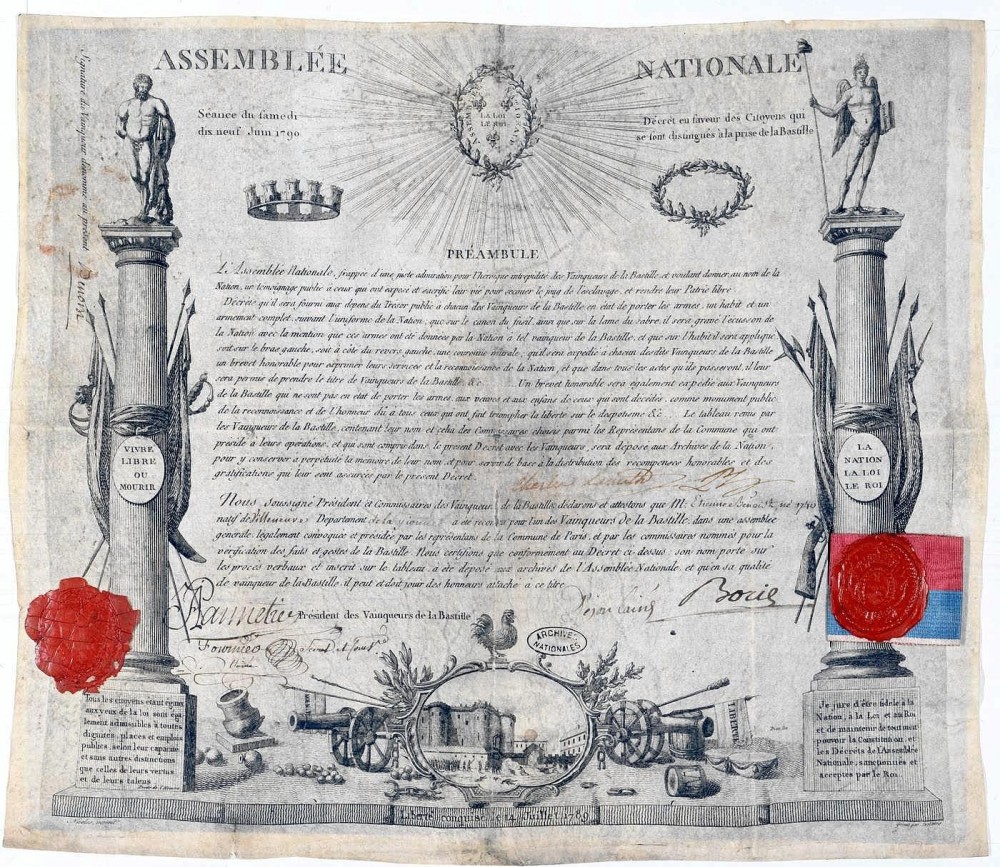 ASSEMBLÉE NATIONALE
Séance du samedi
dix neuf Juin 1790
ASSEMBLÉE NATIONALE
LA LOI
LE ROI
Décret en faveur des Citoyens qui
se sont distingués à la prise de la Bastille
PRÉAMBULE
L'Assemblée Nationale, frappée d'une juste admiration pour l'héroique intrépidité des Vainqueurs de la Bastille et voulant donner au nom de la
Nation, un témoignage public à ceux qui ont exposé et sacrifié leur vie pour secouer le joug de l'esclavage, et rendre leur Patrie libre
Décrète qu'il sera fourni aux dépens du Trésor public à chacun des Vainqueurs de la Bastille en état de porter les armes, un habit et un
armement complet, suivant l'uniforme de la Nation, que sur le canon du fusil, ainsi que sur la lame du sabre, il sera gravé l'écusson de
la Nation avec la mention que ces armes ont été données par la Nation à tel vainqueur de la Bastille, et que sur l'habit il sera appliqué
soit sur le bras gauche, soit à côté du revers gauche, une couronne murale, qu'il sera expédié à chacun desdits Vainqueurs de la Bastille
un brevet honorable pour exprimer leurs services et la reconnoissance de la Nation, et que dans tous les actes qu'ils passeront, il leur
sera permis de prendre le titre de Vainqueurs de la Bastille &c. Un brevet honorable sera également expédié aux Vainqueurs
de la Bastille qui ne sont pas en état de porter les armes, aux veuves et aux enfans de ceux qui sont décédés, comme monument public
de la reconnoissance et de l'honneur dû à tous ceux qui ont fait triompher la liberté sur le despotisme &c. Le tableau remis par
les Vainqueurs de la Bastille, contenant leur nom et celui des Commissaires choisis parmi les Représentans de la Commune qui ont
présidé à leurs opérations, et qui sont compris dans le présent Decret avec les Vainqueurs, sera déposé aux Archives de la Nation,
pour y conserver à perpétuité la mémoire de leur nom et pour servir de base à la distribution des recompenses honorables et des
gratifications qui leur sont assurées par le présent Décret.
Nous soussigné Président et Commissaires des Vainqueurs de la Bastille, déclarons et attestons que M.
natif de Villeneuve Département de la a été reconnu pour l'un des Vainqueurs de la Bastille, dans une assemblée
generale légalement convoquée et présidée par les représentans de la Commune de Paris, et par les commissaires nommés pour la
vérification des faits et gestes de la Bastille. Nous certifions que conformément au Décret ci-dessus, son nom porté sur
les procès verbaux et inséré sur le tableau, a été déposé aux archives de l'Assemblée Nationale, et qu'en sa qualité
de vainqueur de la Bastille, il peut et doit jouir des honneurs attaché à ce titre
Président des Vainqueurs de la Bastille
Fournier
Borie
VIVRE
LIBRE
OU
MOURIR
LA
NATION
LA LOI
LE ROI
ARCHIVES
NATIONALES
LIBERTÉ
Tous les citoyens étant égaux
aux yeux de la loi sont éga
lement admissibles à toutes
dignités, places et emplois
publics, selon leur capacité
et sans autres distinctions
que celles de leurs vertus
et de leurs talens
Je jure d'être fidele à la
Nation, à la Loi et au Roi
et de maintenir de tout mon
pouvoir la Constitution, et
les Décrets de l'Assemblée
Nationale, sanctionnés et
acceptés par le Roi.
conquise le 14 Juillet 1789